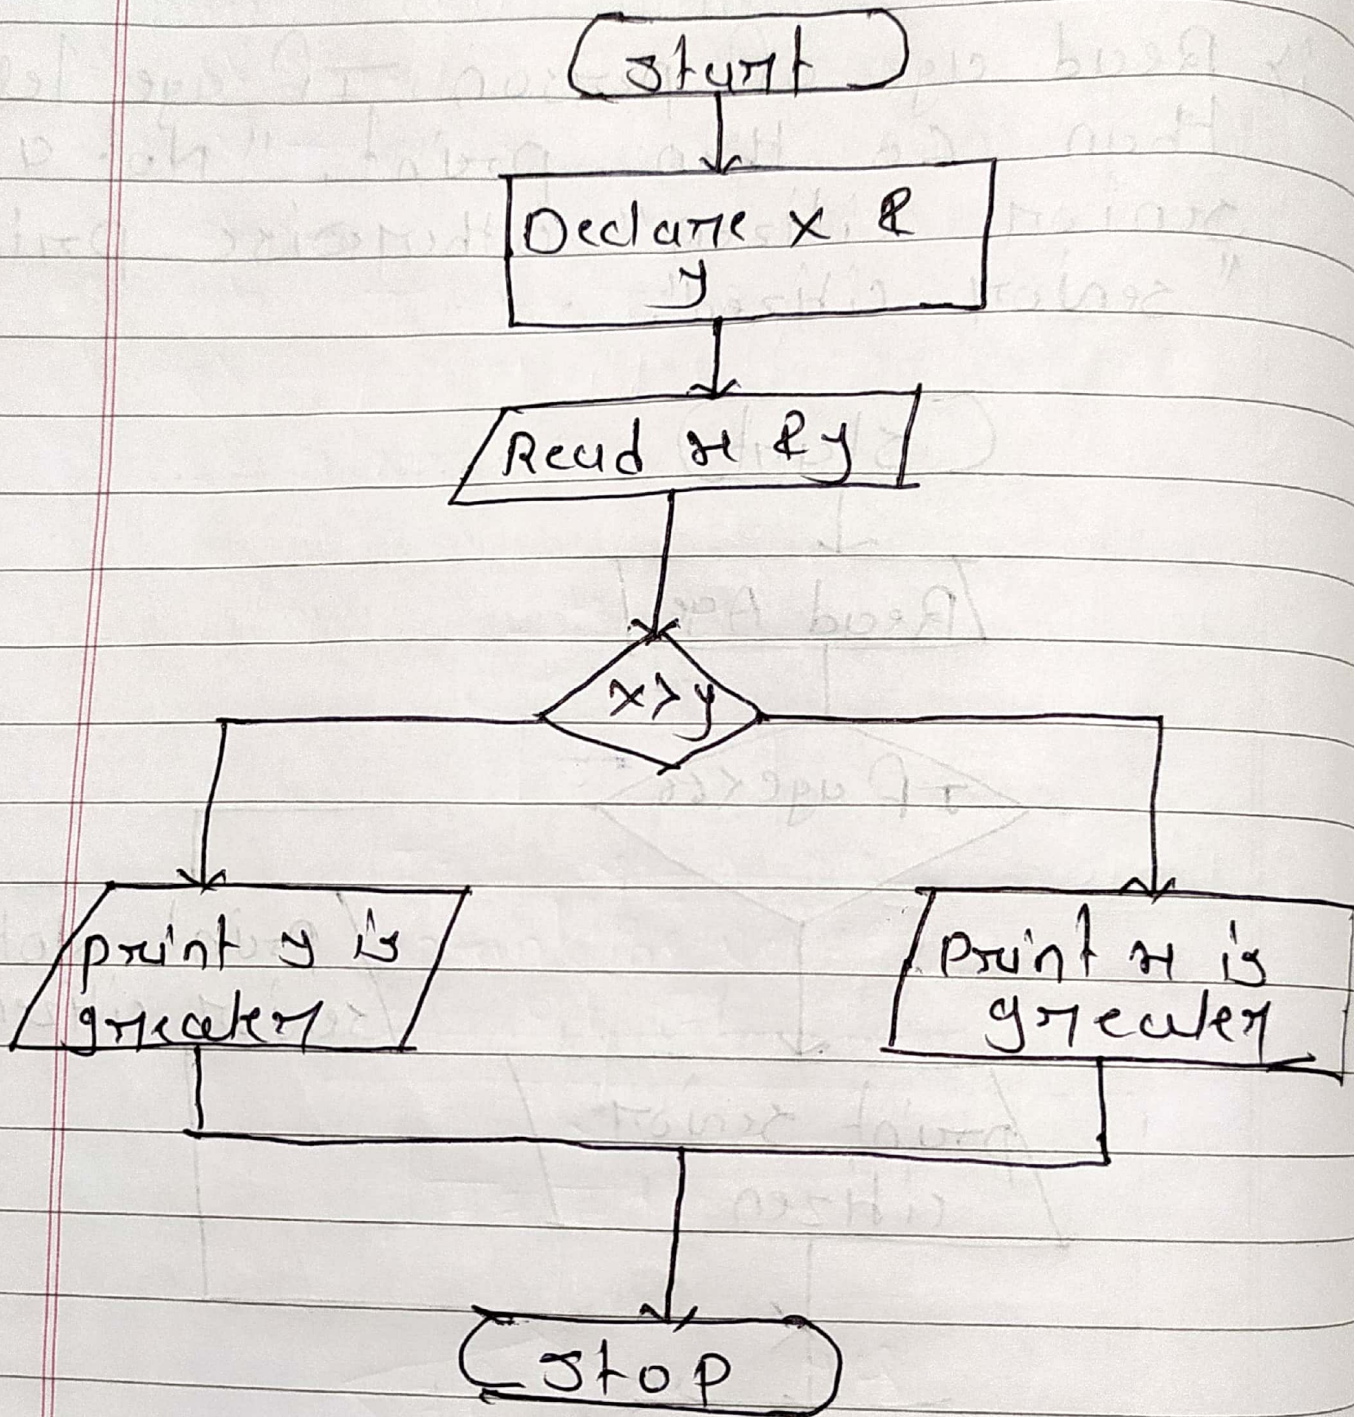 Start
Declare x &
y
Read x & y
x>y
print y is
greater
print x is
greater
Stop